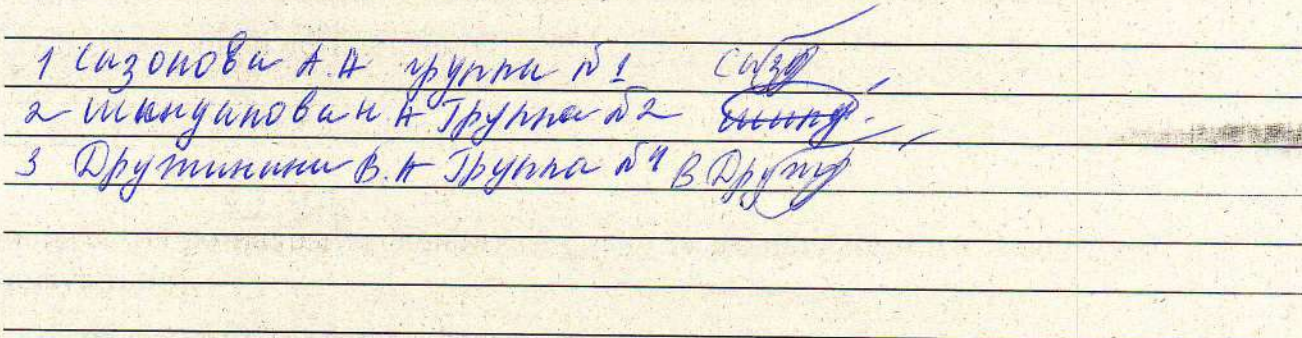 1 Сазонова А.А группа №1 Сазо
2 Шандапова Н.А Группа №2
3 Дружинина В.А Группа №4 В Друж